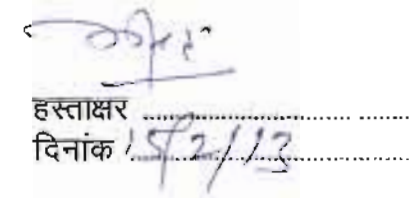 हस्ताक्षर ..............................
दिनांक 15/2/13..................